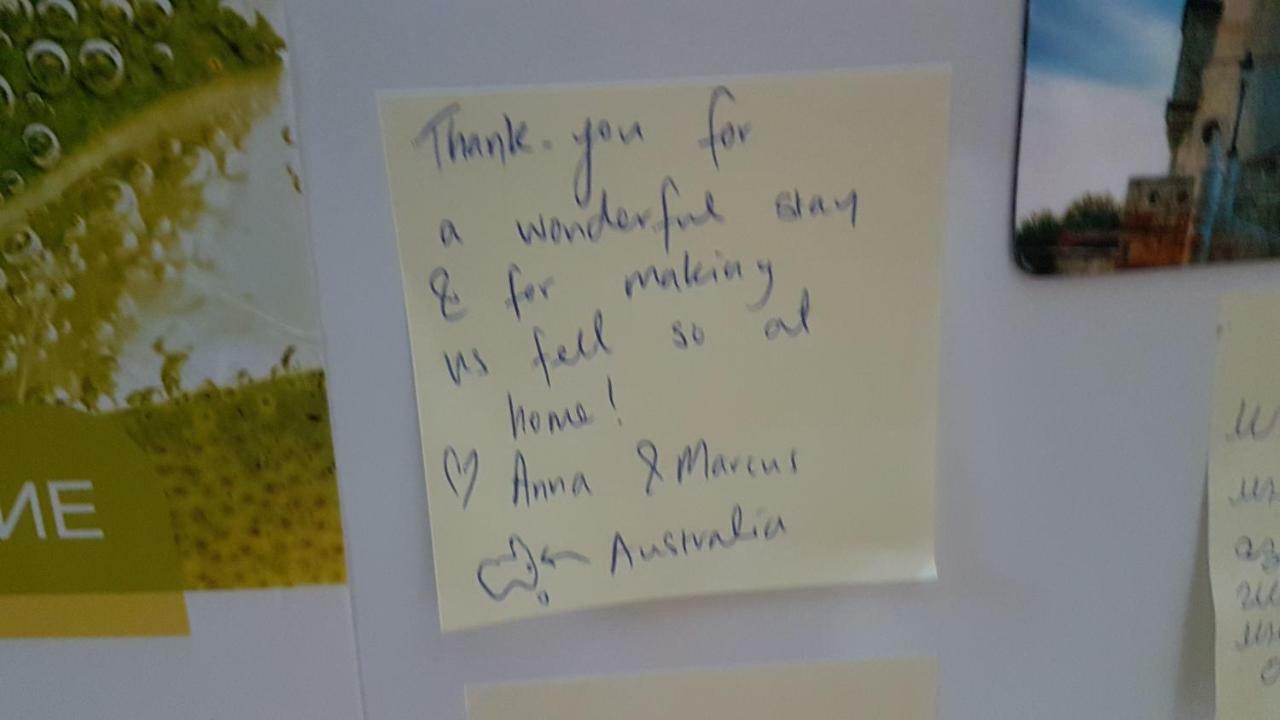 Thank-you for
a wonderful stay
& for making
us fell so at
home!
♡ Anna & Marcus
← Australia
ИЕ